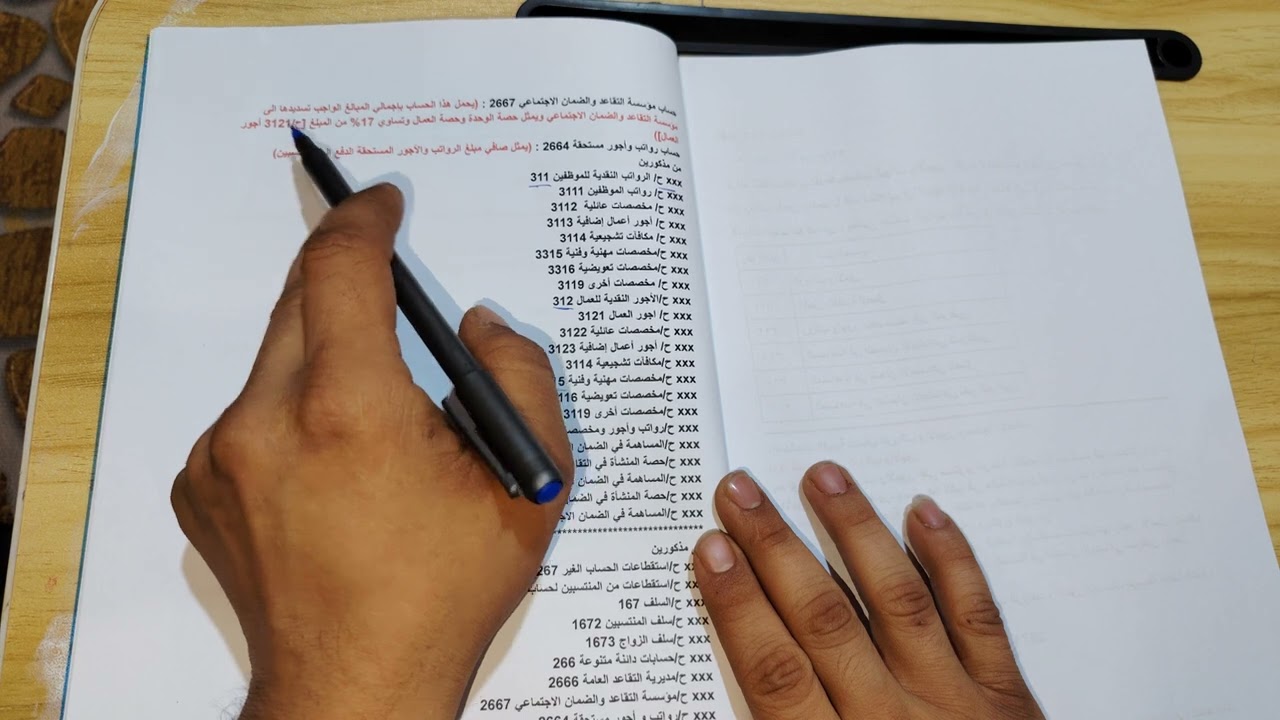 حساب مؤسسة التقاعد والضمان الاجتماعي 2667 : (يحمل هذا الحساب باجمالي المبالغ الواجب تسديدها الى
مؤسسة التقاعد والضمان الاجتماعي ويمثل حصة الوحدة وحصة العمال وتساوي 17% من المبلغ [ح/3121 أجور
العمال])
حساب رواتب وأجور مستحقة 2664 : (يمثل صافي مبلغ الرواتب والأجور المستحقة الدفع
من مذكورين
xxx ح/ الرواتب النقدية للموظفين 311
xxx ح/ رواتب الموظفين 3111
xxx ح/ مخصصات عائلية 3112
xxx ح/ أجور أعمال إضافية 3113
xxx ح/ مكافآت تشجيعية 3114
xxx ح/مخصصات مهنية وفنية 3315
xxx ح/مخصصات تعويضية 3316
xxx ح/ مخصصات أخرى 3119
xxx ح/الأجور النقدية للعمال 312
xxx ح/ اجور العمال 3121
xxx ح/مخصصات عائلية 3122
xxx ح/ أجور أعمال إضافية 3123
xxx ح/مكافآت تشجيعية 3114
xxx ح/مخصصات مهنية وفنية
xxx ح/مخصصات تعويضية
xxx ح/مخصصات أخرى 3119
xxx ح/رواتب وأجور
xxx ح/المساهمة في الضمان
xxx ح/حصة المنشأة في
xxx ح/المساهمة في الضمان
xxx ح/حصة المنشأة في
xxx ح/المساهمة في الضمان
مذكورين
ح/استقطاعات الحساب الغير 267
ح/استقطاعات من المنتسبين
xxx ح/السلف 167
xxx ح/سلف المنتسبين 1672
xxx ح/سلف الزواج 1673
xxx ح/حسابات دائنة متنوعة 266
xxx ح/مديرية التقاعد العامة 2666
xxx ح/مؤسسة التقاعد والضمان الاجتماعي 2667
xxx ح/رواتب و أجور مستحقة 2664